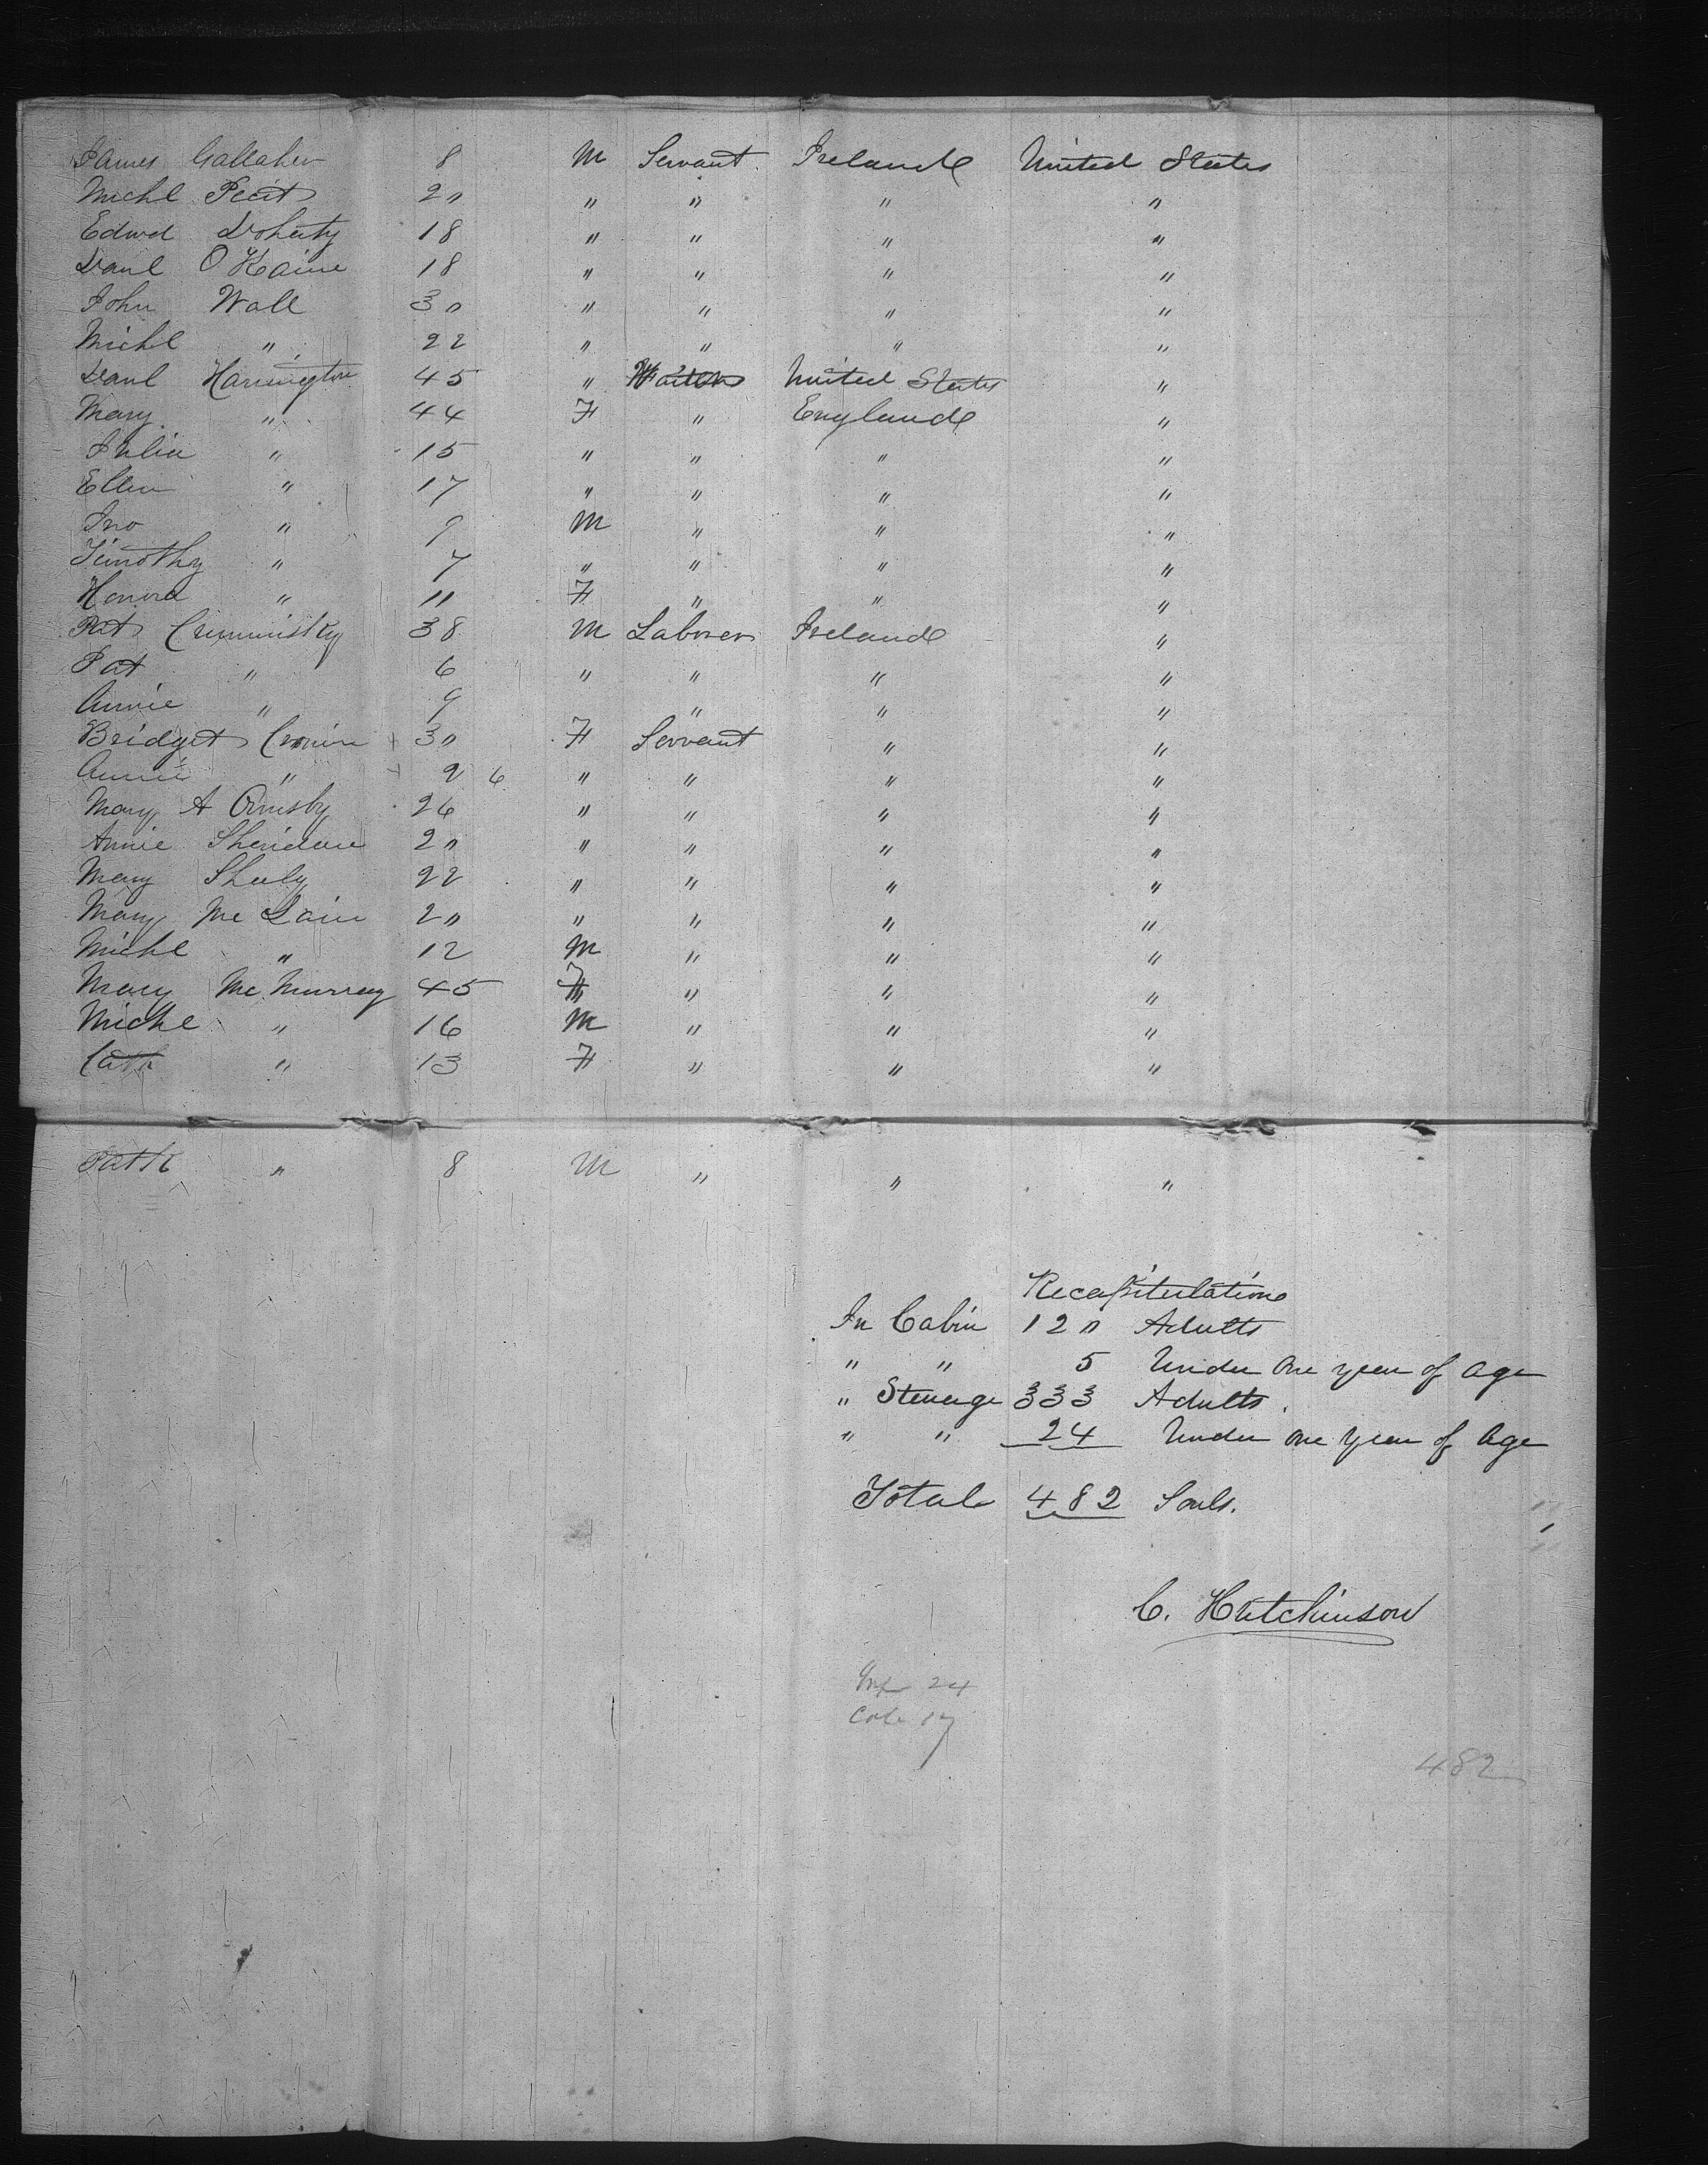 James Gallaher 8 M Servant Ireland United States
Michl 20 " " " "
Edwd Doherty 18 " " " "
Danl O Kaine 18 " " " "
John Wall 30 " " " "
Michl " 22 " " " "
Danl Harrington 45 " United States "
Mary " 44 F " England "
Julia " 15 " " " "
Ellen " 17 " " " "
Jno " 9 M " " "
Timothy " 7 " " " "
Honora " 11 F " " "
Pat Crummisky 38 M Laborer Ireland "
Pat " 6 " " " "
Annie " 9 " " "
Bridget Cronin 30 F Servant " "
Annie " 2 6 " " " "
Mary A Ormsby 26 " " " "
Annie Sheridan 20 " " " "
Mary Sheely 22 " " " "
Mary Mc Lain 20 " " " "
Michl " 12 M " " "
Mary Mc Murray 45 F " " "
Michl " 16 M " " "
Cath " 13 F " " "
Patk " 8 M " " "
Recapitulation
In Cabin 120 Adults
" " 5 Under One year of age
" Steerage 333 Adults.
" " 24 Under one year of Age
Total 482 Souls.
C. Hutchinson
24
17
482